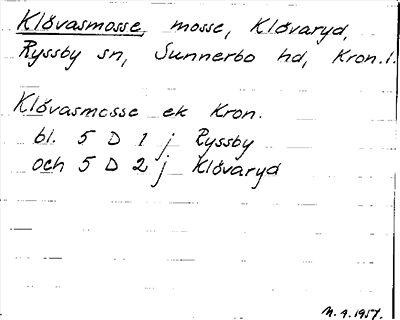 Klövasmosse, mosse, Klövaryd,
Ryssby sn, Sunnerbo hd, Kron.l.
Klövasmosse ek Kron.
bl. 5 D 1 j Ryssby
och 5 D 2 j Klövaryd
n.q.1957.